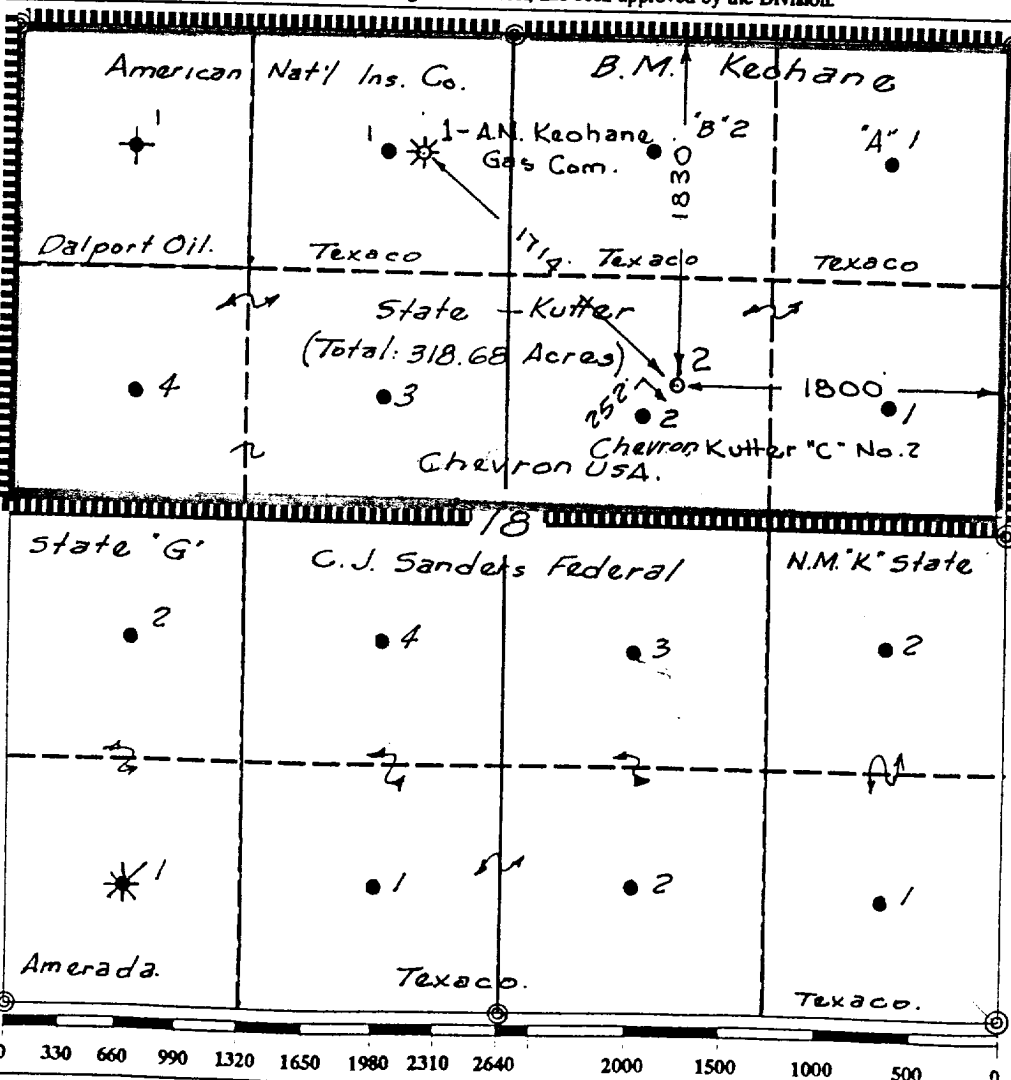 approved by the Division.
American Nat'l Ins. Co. B.M. Keohane
1 1 1-A.N. Keohane "B" 2 "A" 1
Gas Com.
1830
Dalport Oil. Texaco 1719. Texaco Texaco
State - Kutter
(Total: 318.68 Acres) 2
4 3 252' 2 1800' 1
Chevron Kutter "C" No. 2
Chevron USA.
18
State "G" C.J. Sanders Federal N.M. "K" State
2 4 3 2
1 1 2 1
Amerada. Texaco. Texaco.
0 330 660 990 1320 1650 1980 2310 2640 2000 1500 1000 500 0